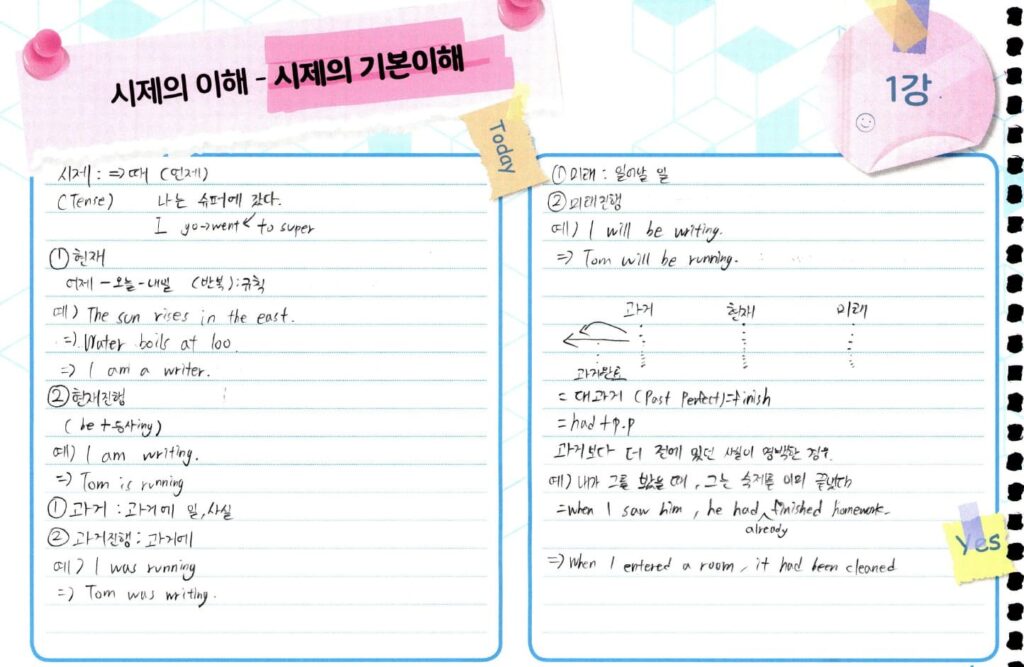 시제의 이해 - 시제의 기본이해
1강
Today
시제 : => 때 (언제)
(Tense) 나는 슈퍼에 갔다.
I go->went to super
① 현재
어제 - 오늘 - 내일 (반복) : 규칙
예) The sun rises in the east.
=> Water boils at 100.
=> I am a writer.
② 현재진행
(be + 동사ing)
예) I am writing.
=> Tom is running
① 과거 : 과거에 일, 사실
② 과거진행 : 과거에
예) I was running
=> Tom was writing.
① 미래 : 일어날 일
② 미래진행
예) I will be writing.
=> Tom will be running.
과거 현재 미래
과거완료
= 대과거 (Past Perfect) = finish
= had + p.p
과거보다 더 전에 있던 사실이 명백한 경우.
예) 내가 그를 봤을 때, 그는 숙제를 이미 끝냈다
= when I saw him, he had finished homework.
already
=> When I entered a room, it had been cleaned
Yes